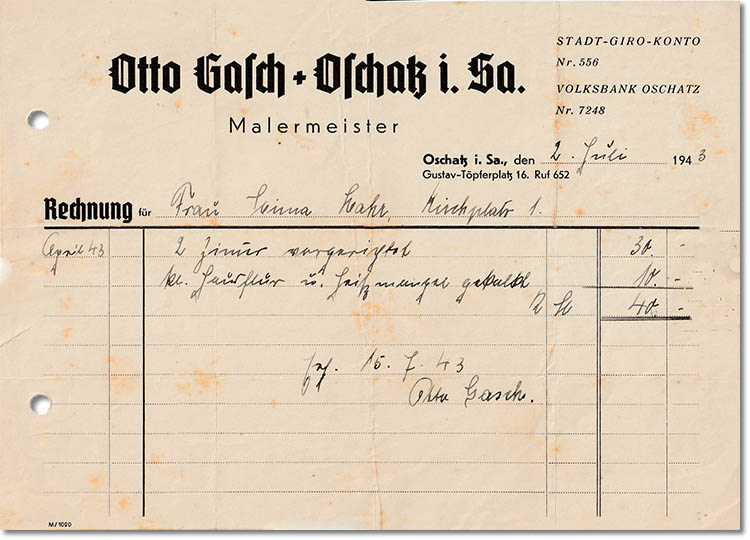 Otto Gasch + Oschatz i. Sa.
Malermeister
STADT-GIRO-KONTO
Nr. 556
VOLKSBANK OSCHATZ
Nr. 7248
Oschatz i. Sa., den 2. Juli 1943
Gustav-Töpferplatz 16. Ruf 652
Rechnung für Frau Hahr, Kirchplatz 1.
April 43 2 Zimer vorgerichtet 30. -
kl. Hausflur u. Heißmangel gekalkt 10. -
40. -
15. 7. 43
Otto Gasch.
M/1090